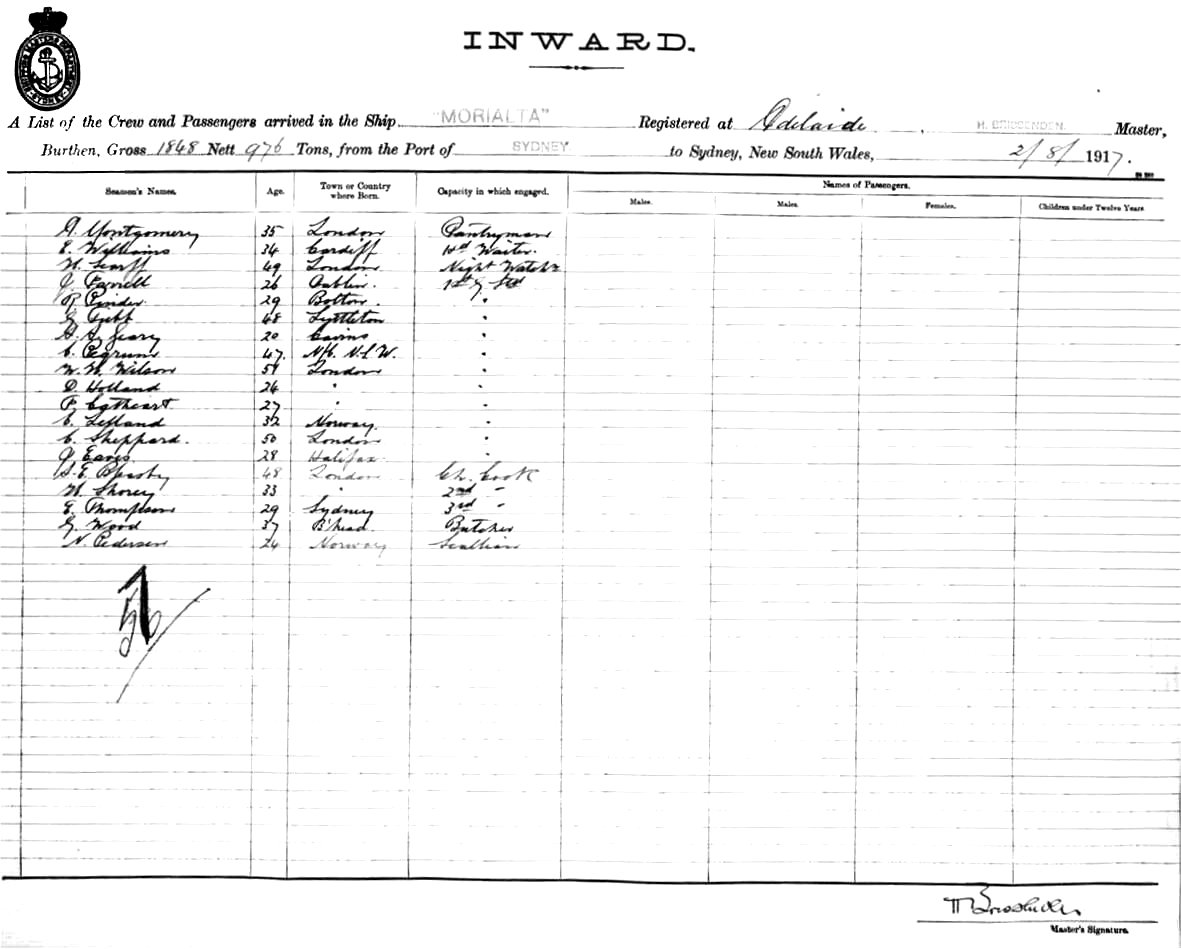 INWARD.
A List of the Crew and Passengers arrived in the Ship "MORIALTA" Registered at Adelaide H. BRISSENDEN. Master,
Burthen, Gross 1848 Nett 976 Tons, from the Port of SYDNEY to Sydney, New South Wales, 2/8/1917.
Seamen's Names. Age. Town or Country where Born. Capacity in which engaged. Names of Passengers.
Males. Males. Females. Children under Twelve Years
A. Montgomery 35 London Pantryman
E. Williams 34 Cardiff Waiter.
H. Scarff 49 London Night Watch
J. Farrell 26 Dublin. 1st
R. Pinder 29 Bolton. "
G. Tubb 48 Lyttleton "
Geary 20 Cairns "
C. Pegrum 47. N.S.W. "
W. H. Wilson 51 London "
D. Holland 24 " "
P. Cathcart 27 " "
C. Lefland 32 Norway. "
C. Sheppard. 50 London "
J. Eaves 28 Halifax. "
48 London Ch. Cook
H. Shorey 33 " 2nd "
E. Thompson 29 Sydney 3rd "
G. Wood 37 B'head. Butcher
N. Pedersen 24 Norway Scullion
Master's Signature.